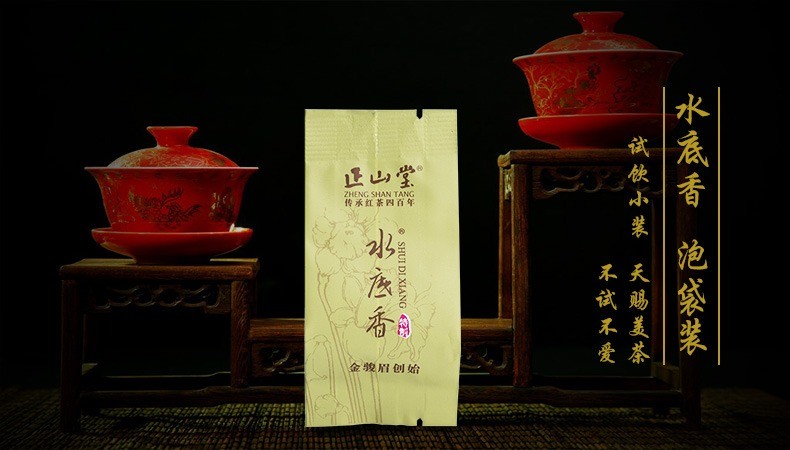 正山堂®
ZHENG SHAN TANG
传承红茶四百年
水底香®
SHUI DI XIANG
金骏眉创始
水底香 泡袋装
试饮小装 天赐美茶
不试不爱